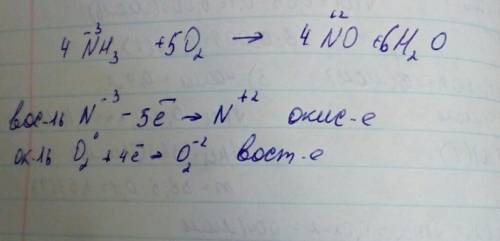 4 N⁻³H₃ + 5O₂ → 4 N⁺²O + 6H₂O
вос-ль N⁻³ - 5e̅ → N⁺² окис-е
ок-ль O₂⁰ + 4e̅ → O₂⁻² вост-е